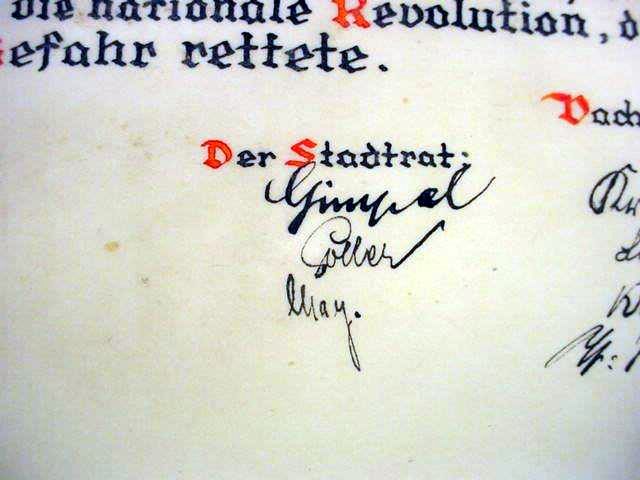 die nationale Revolution, d
Gefahr rettete.
Der Stadtrat:
Gimpel
Goller
May.